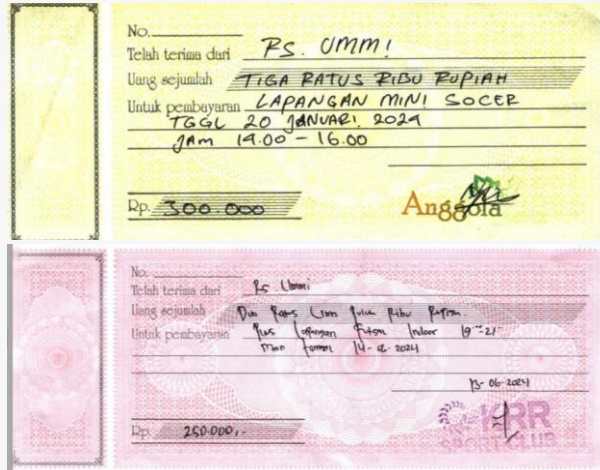 No.
Telah terima dari RS. UMMI
Uang sejumlah TIGA RATUS RIBU RUPIAH
Untuk pembayaran LAPANGAN MINI SOCER
TGGL 20 JANUARI 2024
JAM 14.00 - 16.00
Rp. 300.000
Anggola
No.
Telah terima dari Rs Ummi
Uang sejumlah Dua Ratus Lima Puluh Ribu Rupiah
Untuk pembayaran Lapangan Futsal Indoor 19-21
14-6-2024
13-06-2024
KRR
SPORT CLUB
Rp. 250.000,-